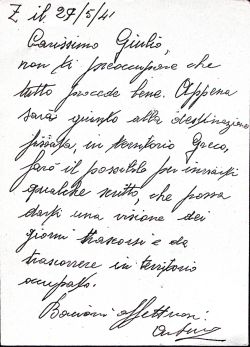 Z il 27/5/41
Carissimo Giulio,
non ti preoccupare che
tutto procede bene. Appena
sarò giunto alla destinazione
fissata, in territorio Greco,
farò il possibile per inviarti
qualche scritto, che possa
darti una visione dei
giorni trascorsi e da
trascorrere in territorio
occupato.
Bacioni affettuosi